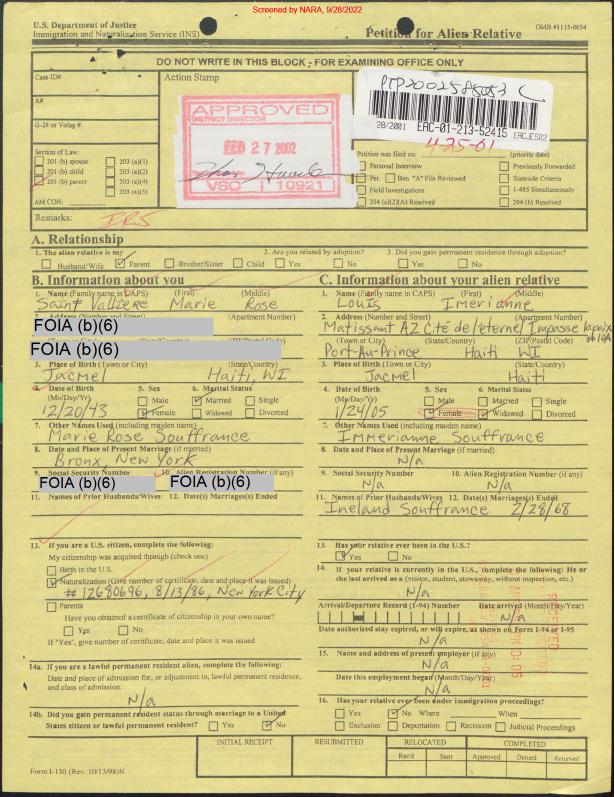 Screened by NARA, 9/28/2022
U.S. Department of Justice
Immigration and Naturalization Service (INS)
Petition for Alien Relative
OMB #1115-0054
DO NOT WRITE IN THIS BLOCK - FOR EXAMINING OFFICE ONLY
Case ID#
Action Stamp
A#
G-28 or Volag #
Section of Law:
201 (b) spouse 203 (a)(1)
201 (b) child 203 (a)(2)
201 (b) parent 203 (a)(4)
203 (a)(5)
AM CON:
APPROVED
DISTRICT DIRECTOR
FEB 27 2002
VSC 10921
28/2001 EAC-01-213-52415 EACJES02
4-25-01
Petition was filed on: (priority date)
Personal Interview Previously Forwarded
Pet. Ben "A" File Reviewed Stateside Criteria
Field Investigations I-485 Simultaneously
204 (a)(2)(A) Resolved 204 (h) Resolved
Remarks: IR5
A. Relationship
1. The alien relative is my 2. Are you related by adoption? 3. Did you gain permanent residence through adoption?
Husband/Wife Parent Brother/Sister Child Yes No Yes No
B. Information about you
1. Name (Family name in CAPS) (First) (Middle)
Saint Vallière Marie Rose
2. Address (Number and Street) (Apartment Number)
FOIA (b)(6)
(Town or City) (State/Country) (ZIP/Postal Code)
FOIA (b)(6)
3. Place of Birth (Town or City) (State/Country)
Jacmel Haiti, WI
4. Date of Birth 5. Sex 6. Marital Status
(Mo/Day/Yr) Male Married Single
12/20/43 Female Widowed Divorced
7. Other Names Used (including maiden name)
Marie Rose Souffrance
8. Date and Place of Present Marriage (if married)
Bronx, New York
9. Social Security Number 10. Alien Registration Number (if any)
FOIA (b)(6) FOIA (b)(6)
11. Names of Prior Husbands/Wives 12. Date(s) Marriages(s) Ended
13. If you are a U.S. citizen, complete the following:
My citizenship was acquired through (check one)
Birth in the U.S.
Naturalization (Give number of certificate, date and place it was issued)
# 12680696, 8/13/86, New York City
Parents
Have you obtained a certificate of citizenship in your own name?
Yes No
If "Yes", give number of certificate, date and place it was issued
14a. If you are a lawful permanent resident alien, complete the following:
Date and place of admission for, or adjustment to, lawful permanent residence,
and class of admission:
N/a
14b. Did you gain permanent resident status through marriage to a United
States citizen or lawful permanent resident? Yes No
C. Information about your alien relative
1. Name (Family name in CAPS) (First) (Middle)
Louis Imerianne
2. Address (Number and Street) (Apartment Number)
Matissant AZ Cité de l'éternel Impasse lapaix
#10A
(Town or City) (State/Country) (ZIP/Postal Code)
Port-Au-Prince Haiti WI
3. Place of Birth (Town or City) (State/Country)
Jacmel Haiti
4. Date of Birth 5. Sex 6. Marital Status
(Mo/Day/Yr) Male Married Single
1/24/05 Female Widowed Divorced
7. Other Names Used (including maiden name)
Immerianne Souffrance
8. Date and Place of Present Marriage (if married)
N/a
9. Social Security Number 10. Alien Registration Number (if any)
N/a N/a
11. Names of Prior Husbands/Wives 12. Date(s) Marriages(s) Ended
Ineland Souffrance 2/28/68
13. Has your relative ever been in the U.S.?
Yes No
14. If your relative is currently in the U.S., complete the following: He or
she last arrived as a (visitor, student, stowaway, without inspection, etc.)
N/a
Arrival/Departure Record (I-94) Number Date arrived (Month/Day/Year)
N/a
Date authorized stay expired, or will expire, as shown on Form I-94 or I-95
N/a
15. Name and address of present employer (if any)
N/a
Date this employment began (Month/Day/Year)
N/a
16. Has your relative ever been under immigration proceedings?
Yes No Where When
Exclusion Deportation Recission Judicial Proceedings
INITIAL RECEIPT RESUBMITTED RELOCATED COMPLETED
Rec'd Sent Approved Denied Returned
Form I-130 (Rev. 10/13/98)N